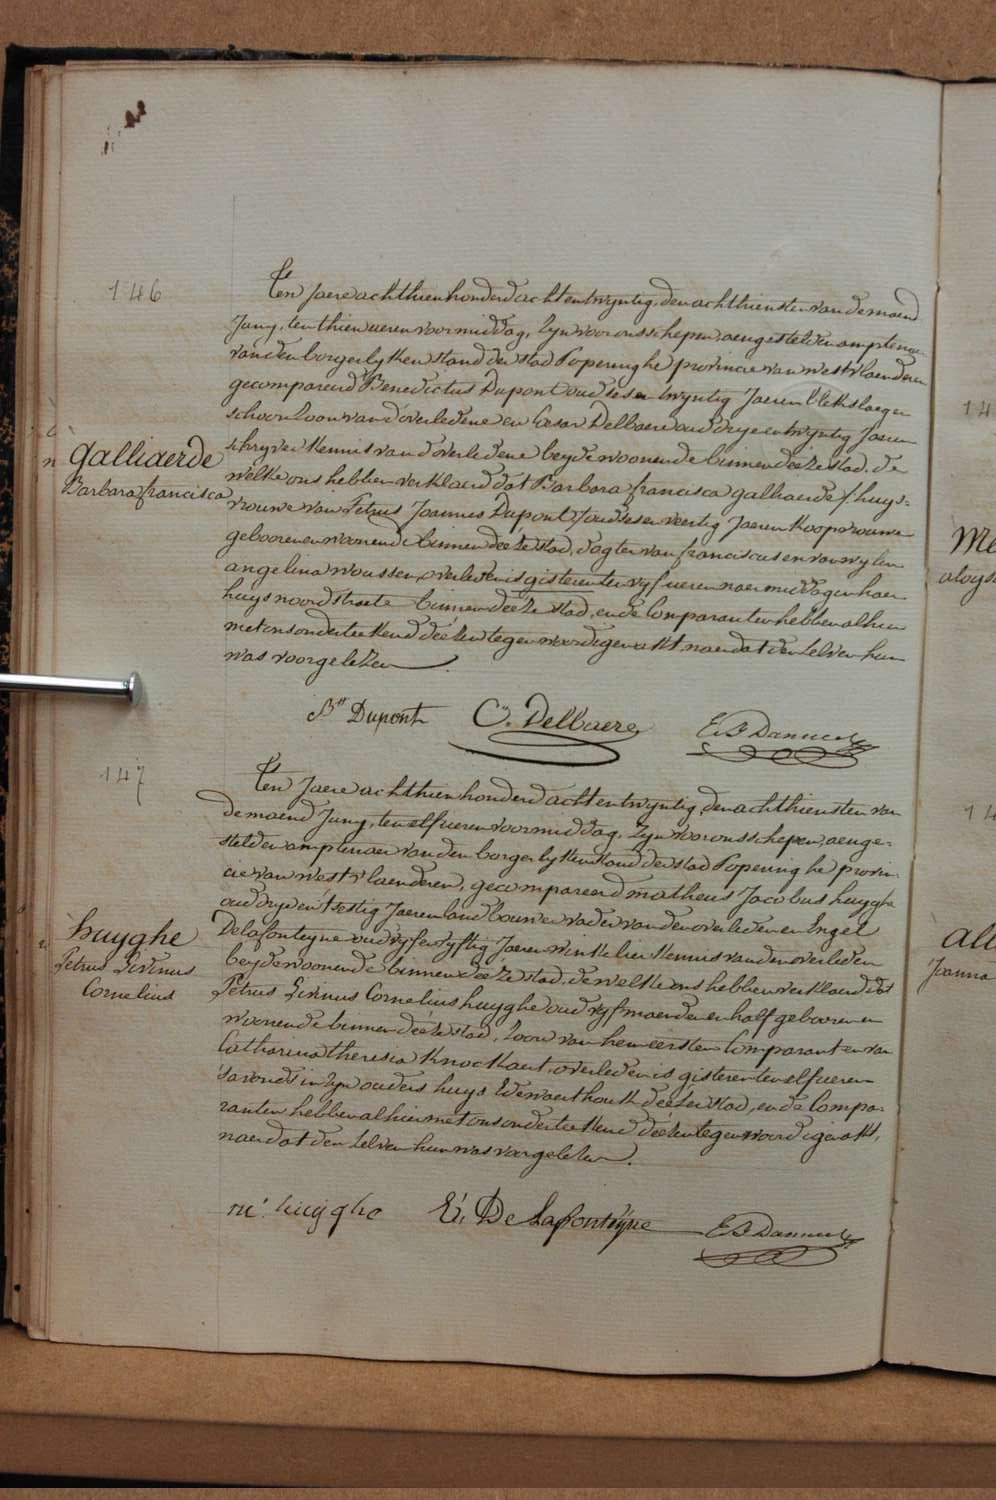 146
Ten Jaere achthienhonderd acht en twyntig, den achthiensten van de maend
Juny, ten thien ueren voormiddag, Zyn voor ons schepen, aengestelden amptenaer
van den borgerlyken stand der stad Poperinghe provincie van westvlaenderen
gecompareerd Benedictus Dupont oud sesen twyntig Jaeren Vleeslaeger
schoonzoon van d'overledene en Cesar Delbaere oud drye en twyntig Jaeren
schryver kennis van d'overledene beyde woonende binnen deeze stad, de
galliaerde
Barbara francisca
welke ons hebben verklaerd dat Barbara francisca galliaerde, huys-
vrouwe van Petrus Joannes Dupont, oud sesen veertig Jaeren koopvrouwe
geboren en woonende binnen deeze stad, dogter van franciscus en van wylen
angelina woussen, overleden is gisteren ten vyf ueren naermiddag in haer
huys noordstraete binnen deeze stad, en de Comparanten hebben alhier
met ons onderteekend deezen tegenwoordigen akt, naer dat den zelven hun
was voorgelezen
Bts Dupont C. Delbaere E. F. Dannu
147
Ten Jaere achthienhonderd acht en twyntig, den achthiensten van
de maend Juny, ten elf ueren voormiddag, Zyn voor ons schepen, aenge-
stelden amptenaer van den borgerlyken stand der stad Poperinghe provin-
cie van westvlaenderen, gecompareerd matheus Jacobus huyghe
oud dry en t'sestig Jaeren landbouwer vader van den overleden en Engel
huyghe
Petrus Livinus
Cornelius
Delafonteyne oud vyfenvyftig Jaeren winkelier kennis van den overleden
beyde woonende binnen deeze stad, dewelke ons hebben verklaerd dat
Petrus Livinus Cornelius huyghe oud vyf maenden en half geboren en
woonende binnen deeze stad, Zoon van hem eersten Comparant en van
Catharina theresia Knockaert, overleden is gisteren ten elf ueren
'savonds in zyn ouders huys Edewaerthoek deezer stad, en de Compa-
ranten hebben alhier met ons onderteekend deezen tegenwoordigen akt,
naer dat den zelven hun was voorgelezen.
m: huyghe E. De Lafonteyne E. F. Dannu
14
Me
aloys
14
all
Joanna